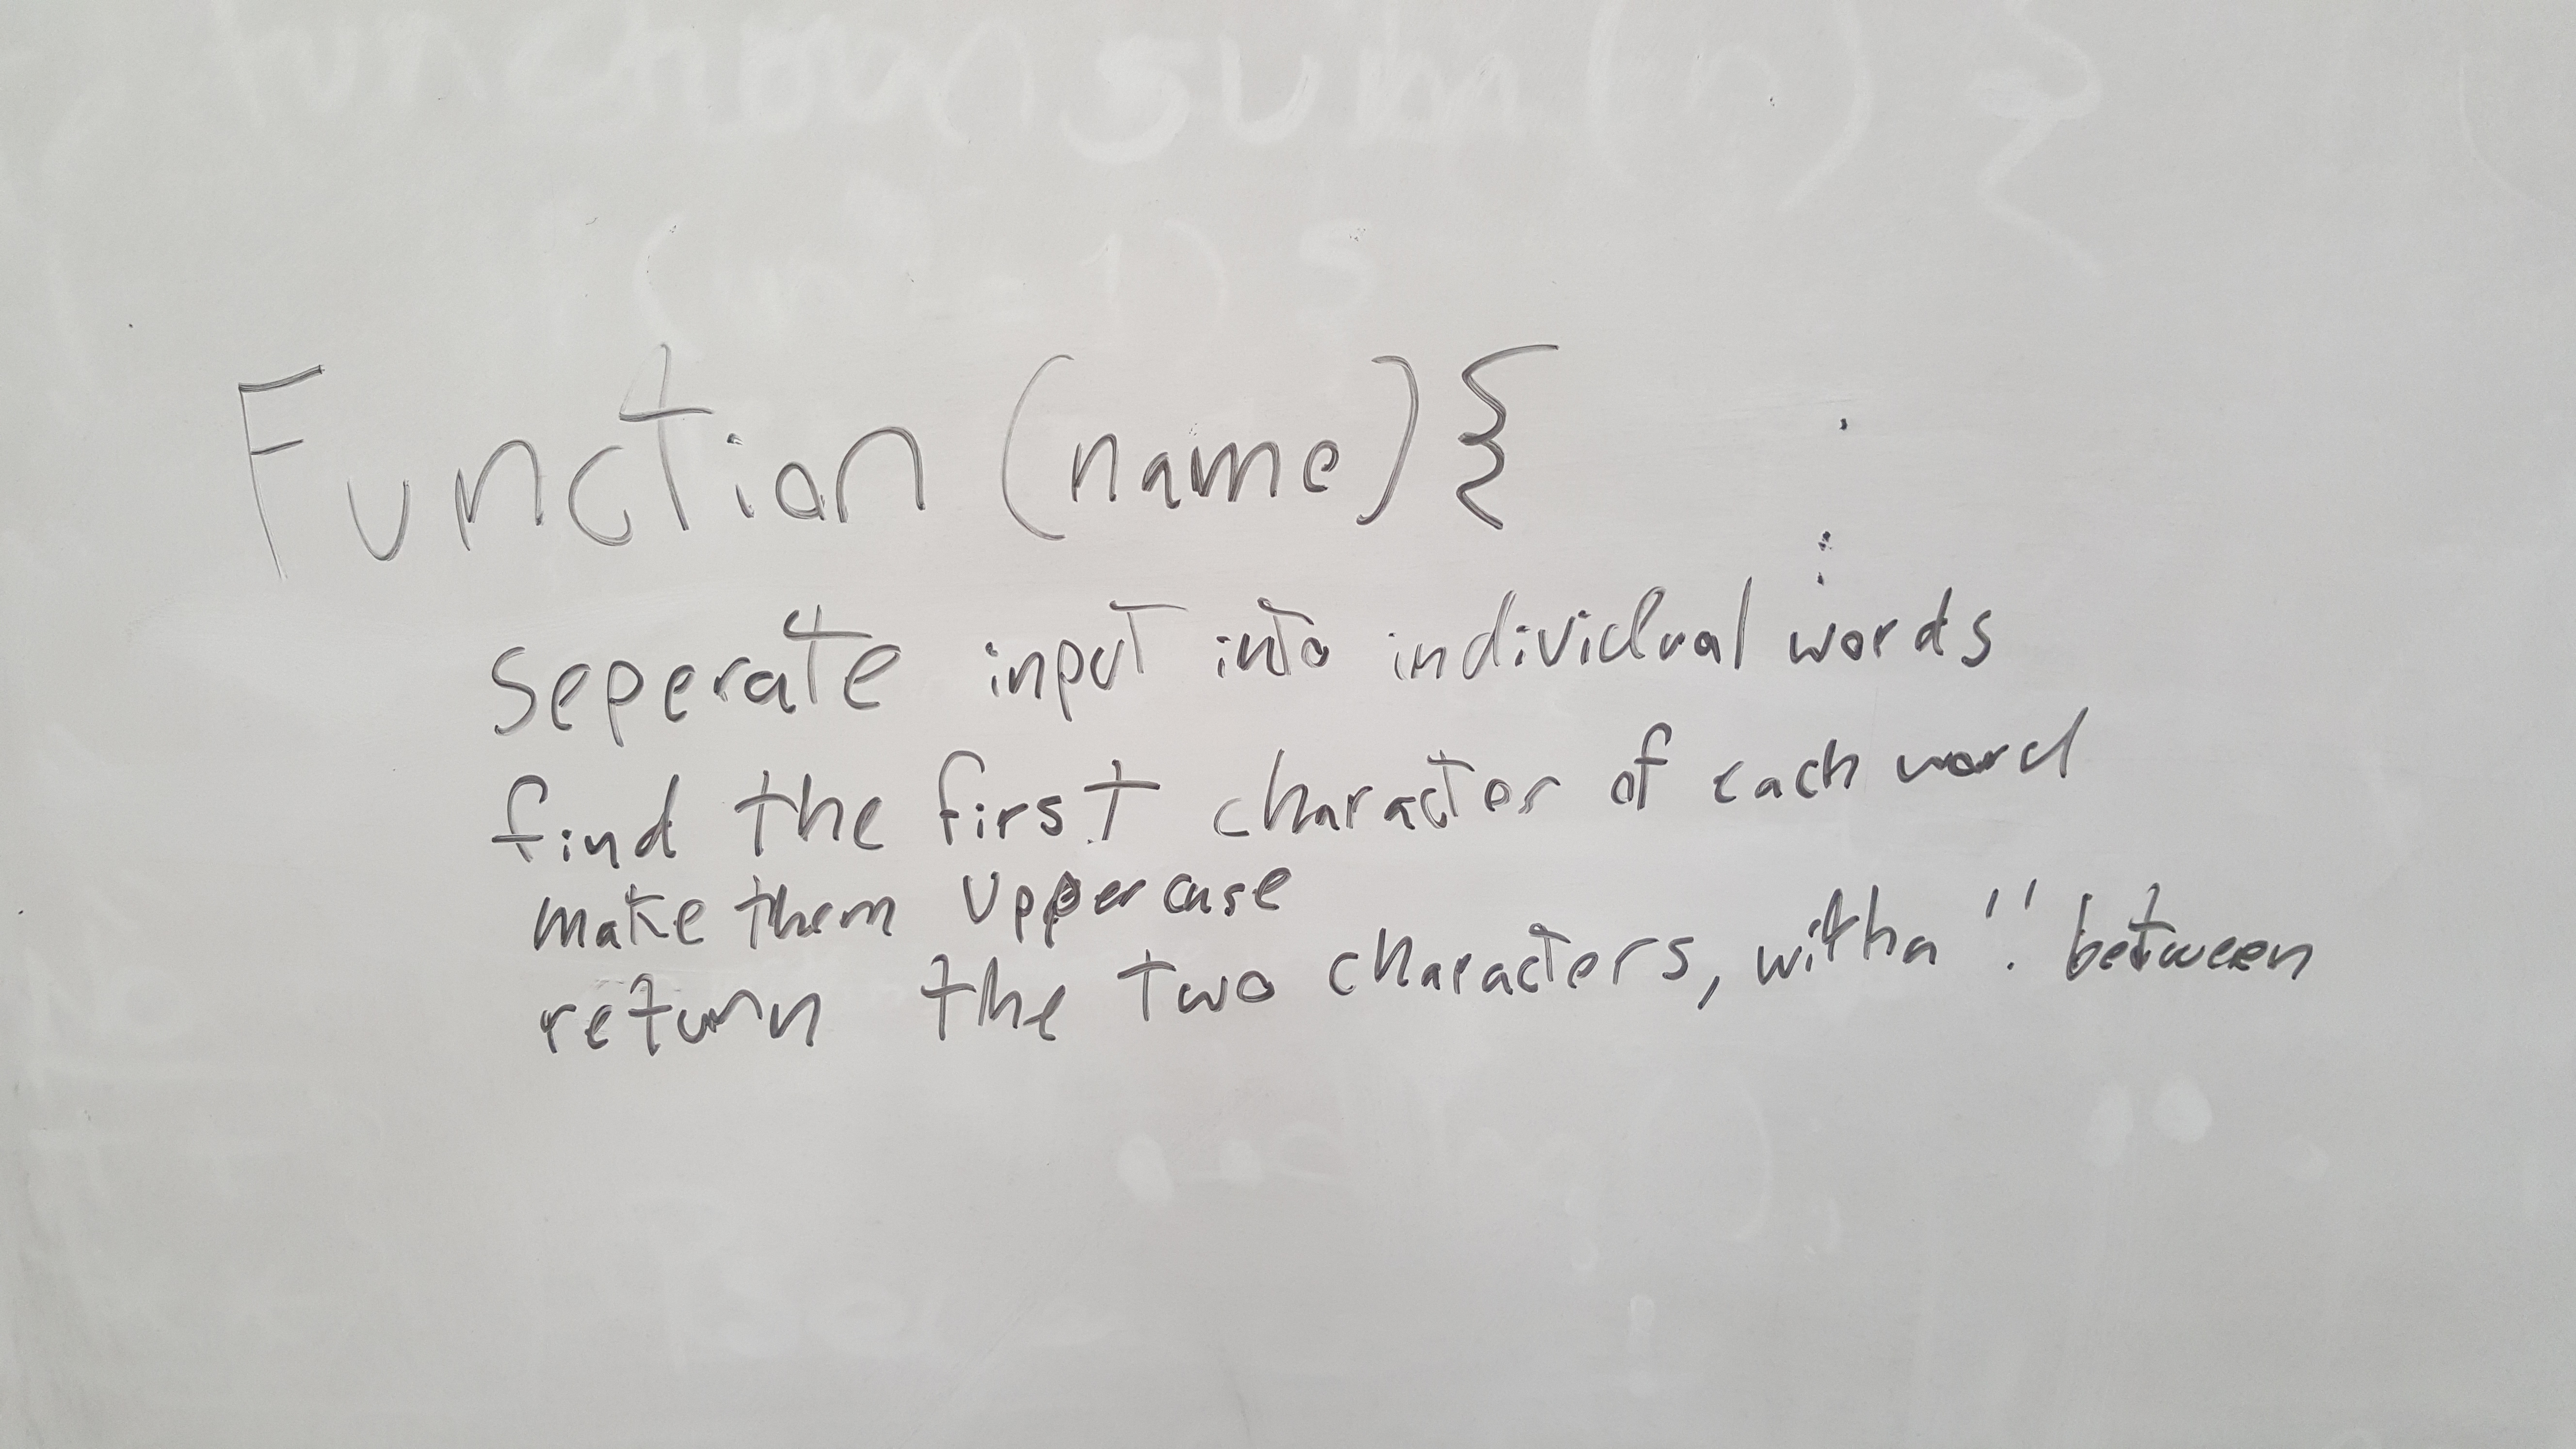 function sum(n) {
(n - 1) {
Function (name) {
seperate input into individual words
find the first character of each word
make them uppercase
return the two characters, with a '.' between